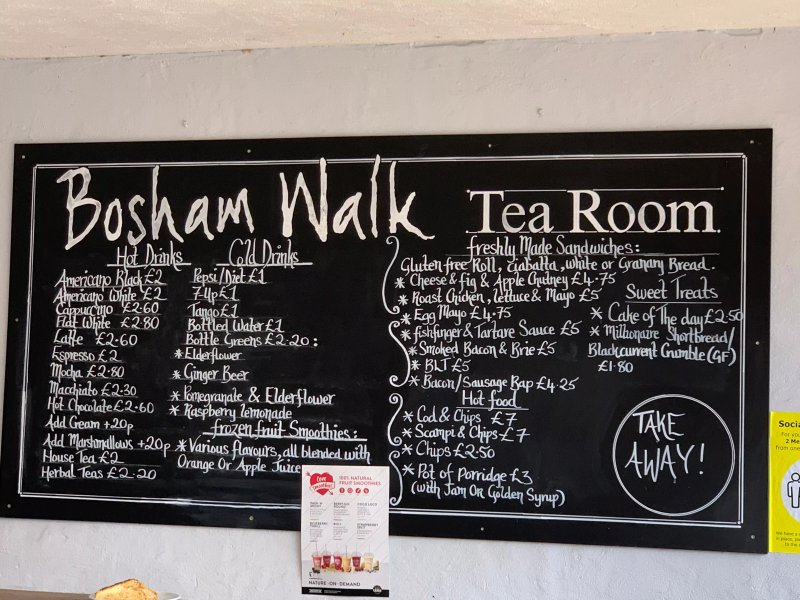 Bosham Walk Tea Room
Hot Drinks
Americano Black £2
Americano White £2
Cappuccino £2-60
Flat White £2.80
Latte £2-60
Espresso £2
Mocha £2-80
Macchiato £2-30
Hot Chocolate £2-60
Add Cream +20p
Add Marshmallows +20p
House Tea £2
Herbal Teas £2-20
Cold Drinks
Pepsi/Diet £1
7-Up £1
Tango £1
Bottled Water £1
Bottle Greens £2-20:
* Elderflower
* Ginger Beer
* Pomegranate & Elderflower
* Raspberry lemonade
frozen fruit Smoothies:
* Various flavours, all blended with
Orange Or Apple Juice
freshly Made Sandwiches:
Gluten free Roll, Ciabatta, white or Granary Bread.
* Cheese & fig & Apple Chutney £4-75
* Roast Chicken, lettuce & Mayo £5
* Egg Mayo £4-75
* fishfinger & Tartare Sauce £5
* Smoked Bacon & Brie £5
* BLT £5
* Bacon/Sausage Bap £4-25
Hot food
* Cod & Chips £7
* Scampi & Chips £7
* Chips £2-50
* Pot of Porridge £3
(with Jam Or Golden Syrup)
Sweet Treats
* Cake of The day £2-50
* Millionaire Shortbread/
Blackcurrent Crumble (GF)
£1-80
TAKE
AWAY!
Love
Smoothies
100% NATURAL
FRUIT SMOOTHIES
NATURE-ON-DEMAND
Socia
For you
2 Me
from one